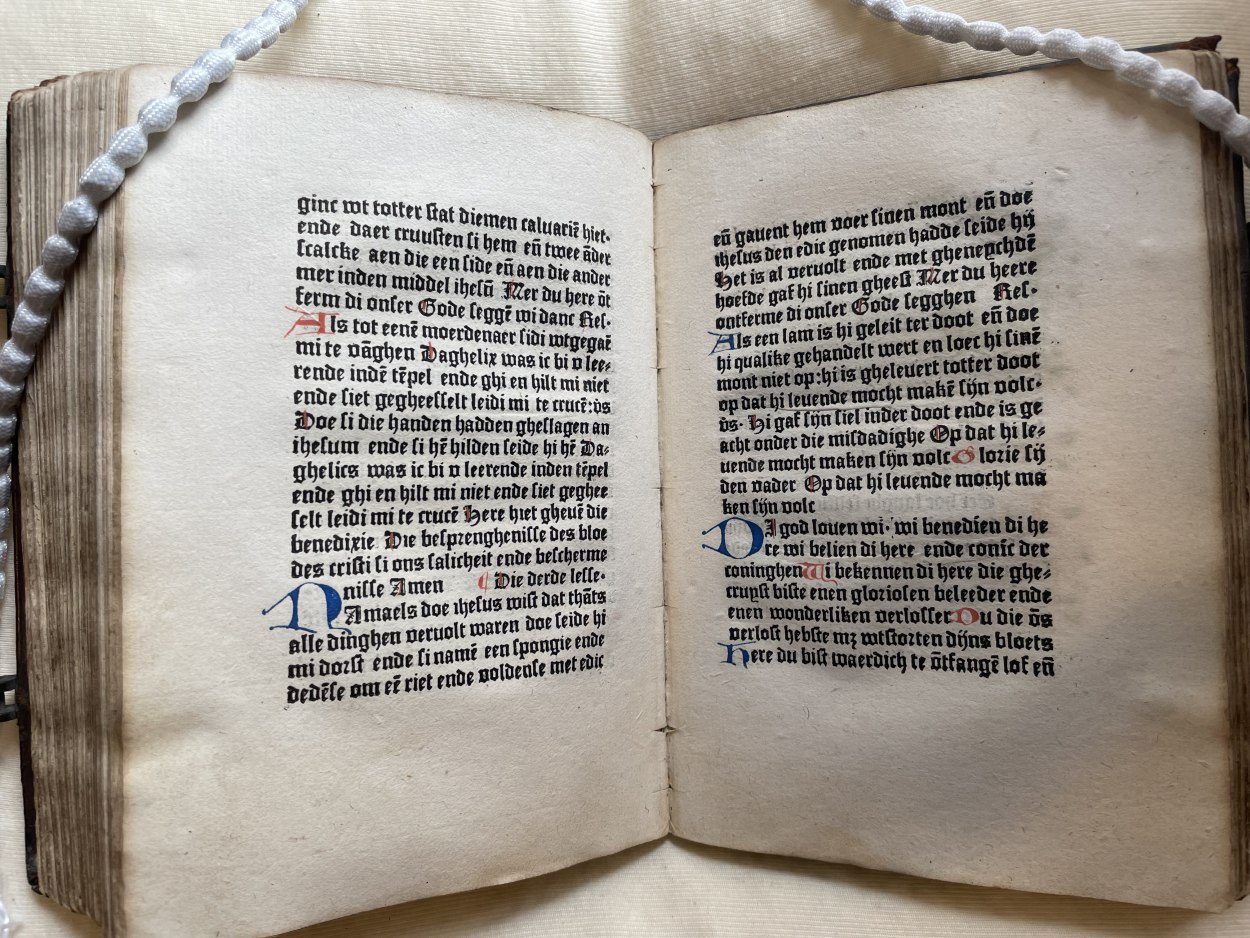 ginc wt totter stat diemen caluariē hiet·
ende daer cruusten si hem en̄ twee āder
scalcke aen die een side en̄ aen die ander
mer inden middel ihesū Mer du here ōt
ferm di onser Gode seggē wi danc Res·
Als tot eenē moerdenaer sidi wtgegaē
mi te vāghen Daghelix was ic bi v lee⸗
rende indē tēpel ende ghi en hilt mi niet
ende siet gegheesselt leidi mi te crucē: v̄s
Doe si die handen hadden gheslagen an
ihesum ende si hē hilden seide hi hē Da⸗
ghelics was ic bi v leerende inden tēpel
ende ghi en hilt mi niet ende siet geghee
selt leidi mi te crucē Here hiet gheuē die
benedixie Die besprenghenisse des bloe
des cristi si ons salicheit ende bescherme
nisse Amen ¶ Die derde lesse·
NAmaels doe ihesus wist dat thāts
alle dinghen veruolt waren doe seide hi
mi dorst ende si namē een spongie ende
dedēse om eē riet ende voldense met edic
en̄ gauent hem voer sinen mont en̄ doe
ihesus den edic genomen hadde seide hij
Het is al veruolt ende met gheneychdē
hoefde gaf hi sinen gheest Mer du heere
ontferme di onser Gode segghen Res·
Als een lam is hi geleit ter doot en̄ doe
hi qualike gehandelt wert en loec hi sinē
mont niet op: hi is gheleuert totter doot
op dat hi leuende mocht makē sijn volc·
v̄s· Hi gaf sijn siel inder doot ende is ge
acht onder die misdadighe Op dat hi le⸗
uende mocht maken sijn volc Glorie sij
den vader Op dat hi leuende mocht ma
ken sijn volc
DI god louen wi· wi benedien di he
re wi belien di here ende conic der
coninghen Wi bekennen di here die ghe⸗
cruyst biste enen gloriosen beleeder ende
enen wonderliken verlosser Du die ōs
verlost hebste mꝫ wtstorten dijns bloets
Here du bist waerdich te ōtfangē lof en̄